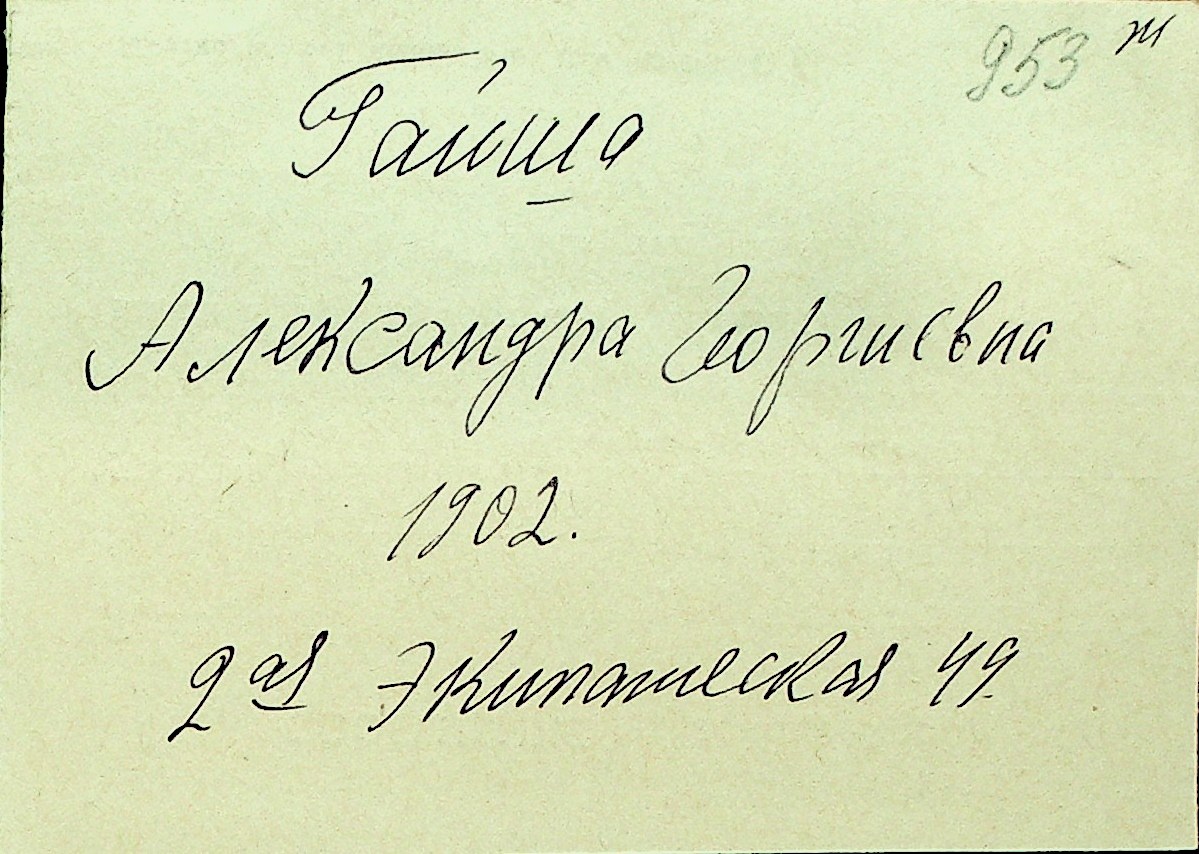 953 ж
Гайша
Александра Георгиевна
1902.
2ая Экипажеская 49